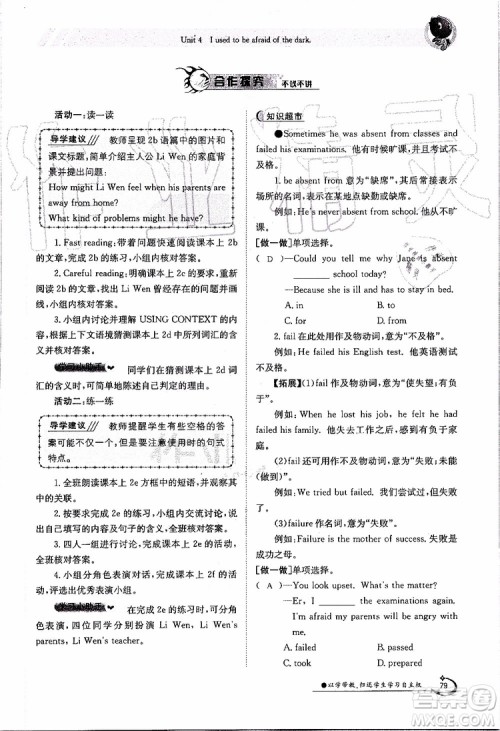 Unit 4 I used to be afraid of the dark.
合作探究 不议不讲
活动一:读一读
导学建议 教师呈现2b语篇中的图片和
课文标题,简单介绍主人公Li Wen的家庭背
景并提出问题:
How might Li Wen feel when his parents are
away from home?
What kind of problems might he have?
1. Fast reading:带着问题快速阅读课本上2b的
文章,小组内核对答案。
2. Careful reading:明确课本上2c的内容,细读
2b的文章,找出Li Wen曾经历的事情并完成
2c的练习,小组内核对答案。
3. 小组内讨论并理解USING CONTEXT的内
容。根据上下文语境猜测课本中2d中所列词汇的含
义并核对答案。
同学们在猜测课本上2d词
汇的含义时,可简单地陈述自己判定的理由。
活动二:练一练
导学建议 教师提醒学生有些空格的答
案可能不仅一个,但要注意使用时的句式
特点。
1. 全班朗读课本上2e方框中的短语。
2. 按要求完成2e的练习,小组内讨论填写的内
容及句子的含义,并核对答案。
3. 四人一组进行2e的对话练习,小组展示对话,
全班核对答案。
4. 小组分角色表演对话,小组内成员可轮换角
色,评选出优秀表演小组。
在完成2e的练习时,可分角
色表演,四位同学分别扮演Li Wen, Li Wen's
parents, Li Wen's teacher.
知识超市
●Sometimes he was absent from classes and
failed his examinations. 他有时候旷课,并且考试不
及格。
1. be absent from意为“缺席”,其中absent作
形容词,意为“缺席的;不在的”,from后常接表示活
动或地点的名词,表示缺勤或缺席。
例如:He's never absent from school. 他从不
旷课。
[做一做]单项选择。
( D )—Could you tell me why Jane is absent
______ school today?
—Because she is ill and has to stay in bed.
A. in B. to
C. for D. from
2. fail在此处用作及物动词,意为“不及格”。
例如:He failed his English test. 他英语测试
不及格。
【拓展】(1)fail作及物动词,意为“使失望;有负
于”。
例如:When he lost his job, he felt he had
failed his family. 他失去工作以后,感到自己有负
于家庭。
(2)fail还可用作不及物动词,意为“失败;未能
(做到)”。
例如:We tried but failed. 我们尝试过,但失
败了。
(3)failure作名词,意为“失败”。
例如:Failure is the mother of success. 失败乃
成功之母。
[做一做]单项选择。
( A )—You look upset. What's the matter?
—Er, I ______ the examinations again,
mum.
A. failed B. passed
C. took D. prepared
以学带教,归还学生学习自主权 79